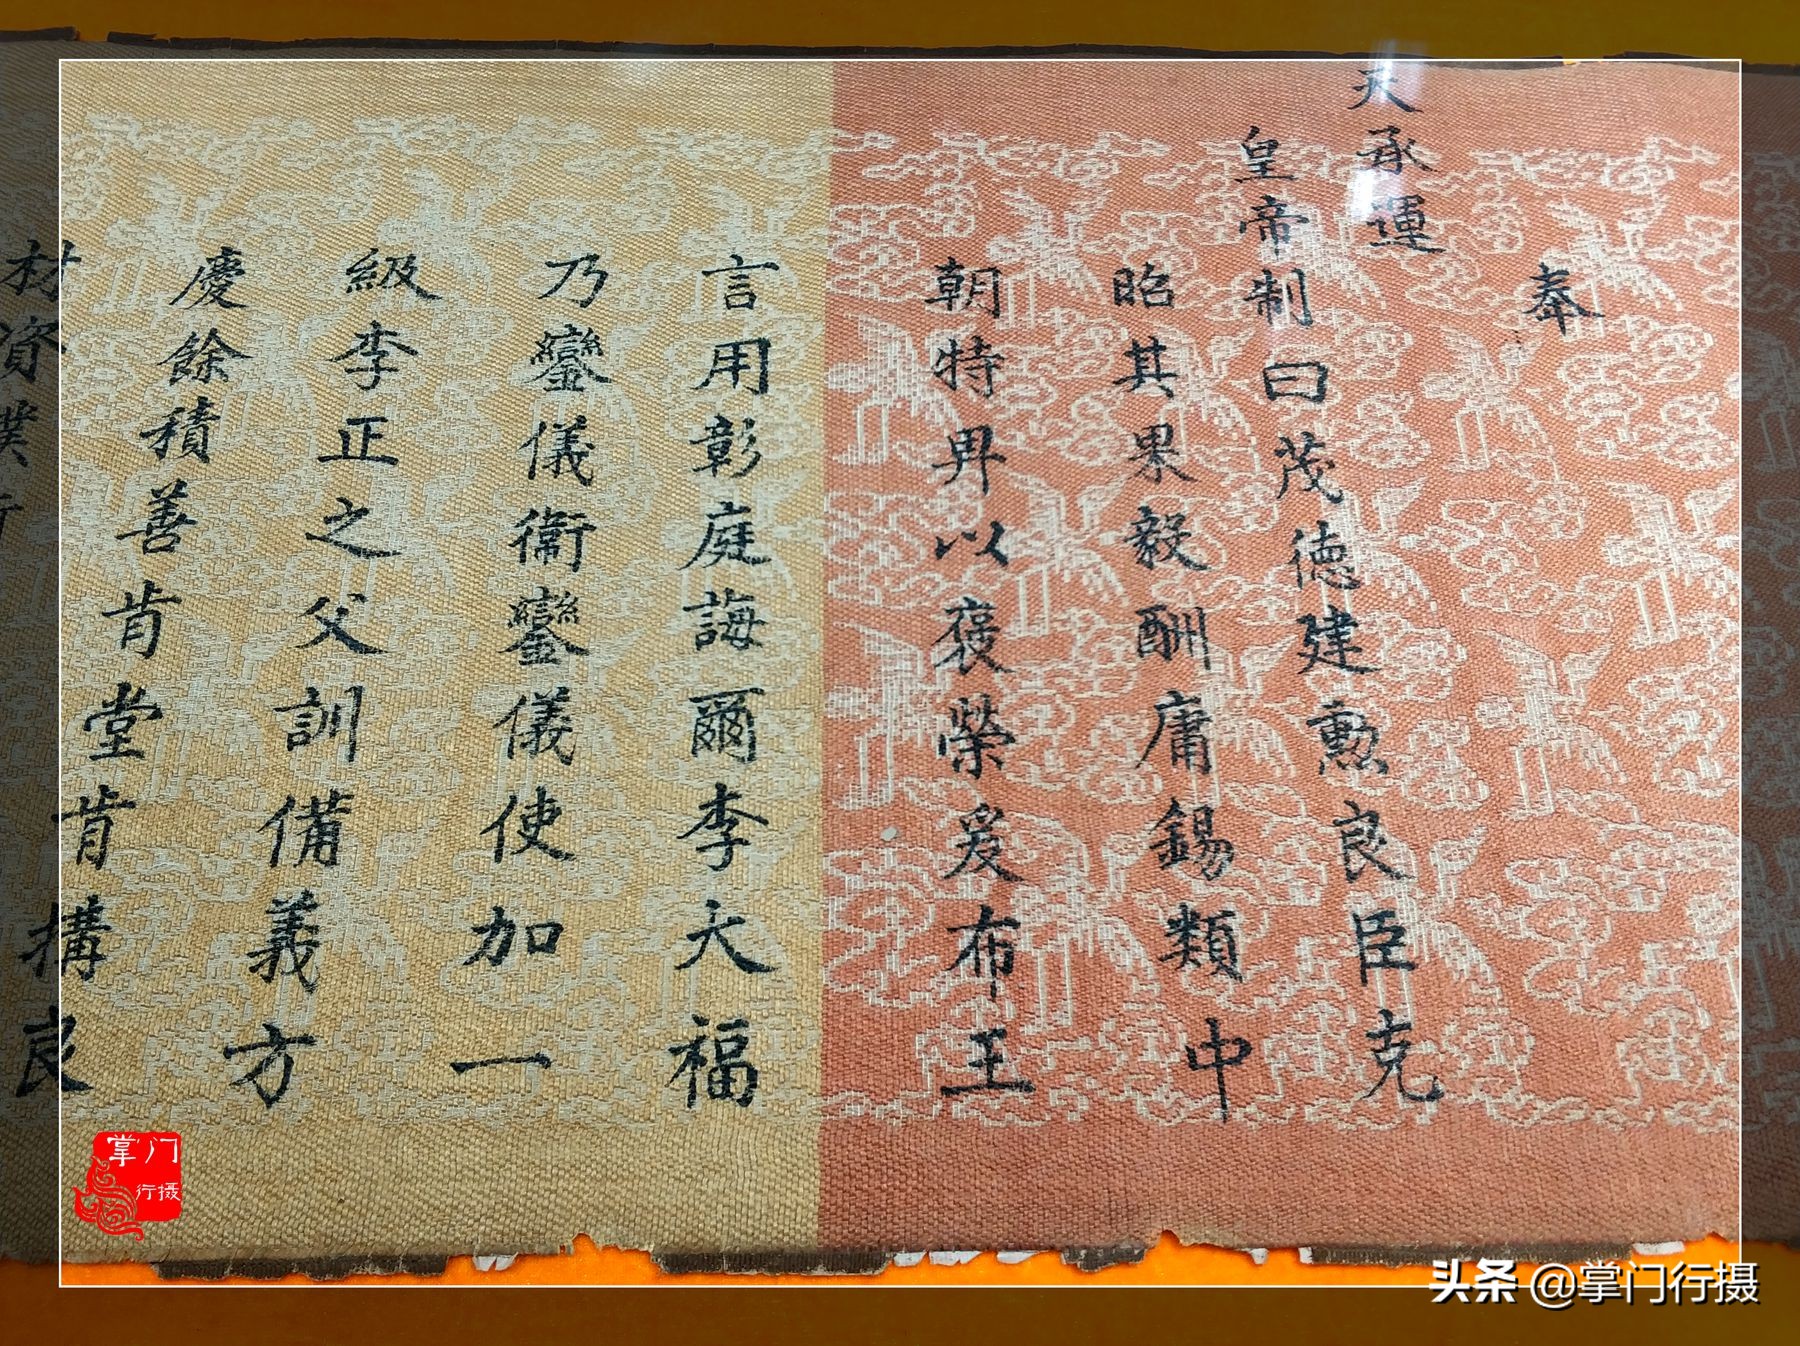 奉
天承運
皇帝制曰茂德建勲良臣克
昭其果毅酬庸錫類中
朝特畀以褒榮爰布王
言用彰庭誨爾李大福
乃鑾儀衞鑾儀使加一
級李正之父訓備義方
慶餘積善肯堂肯構良
材資樸
掌门
行摄
头条 @掌门行摄